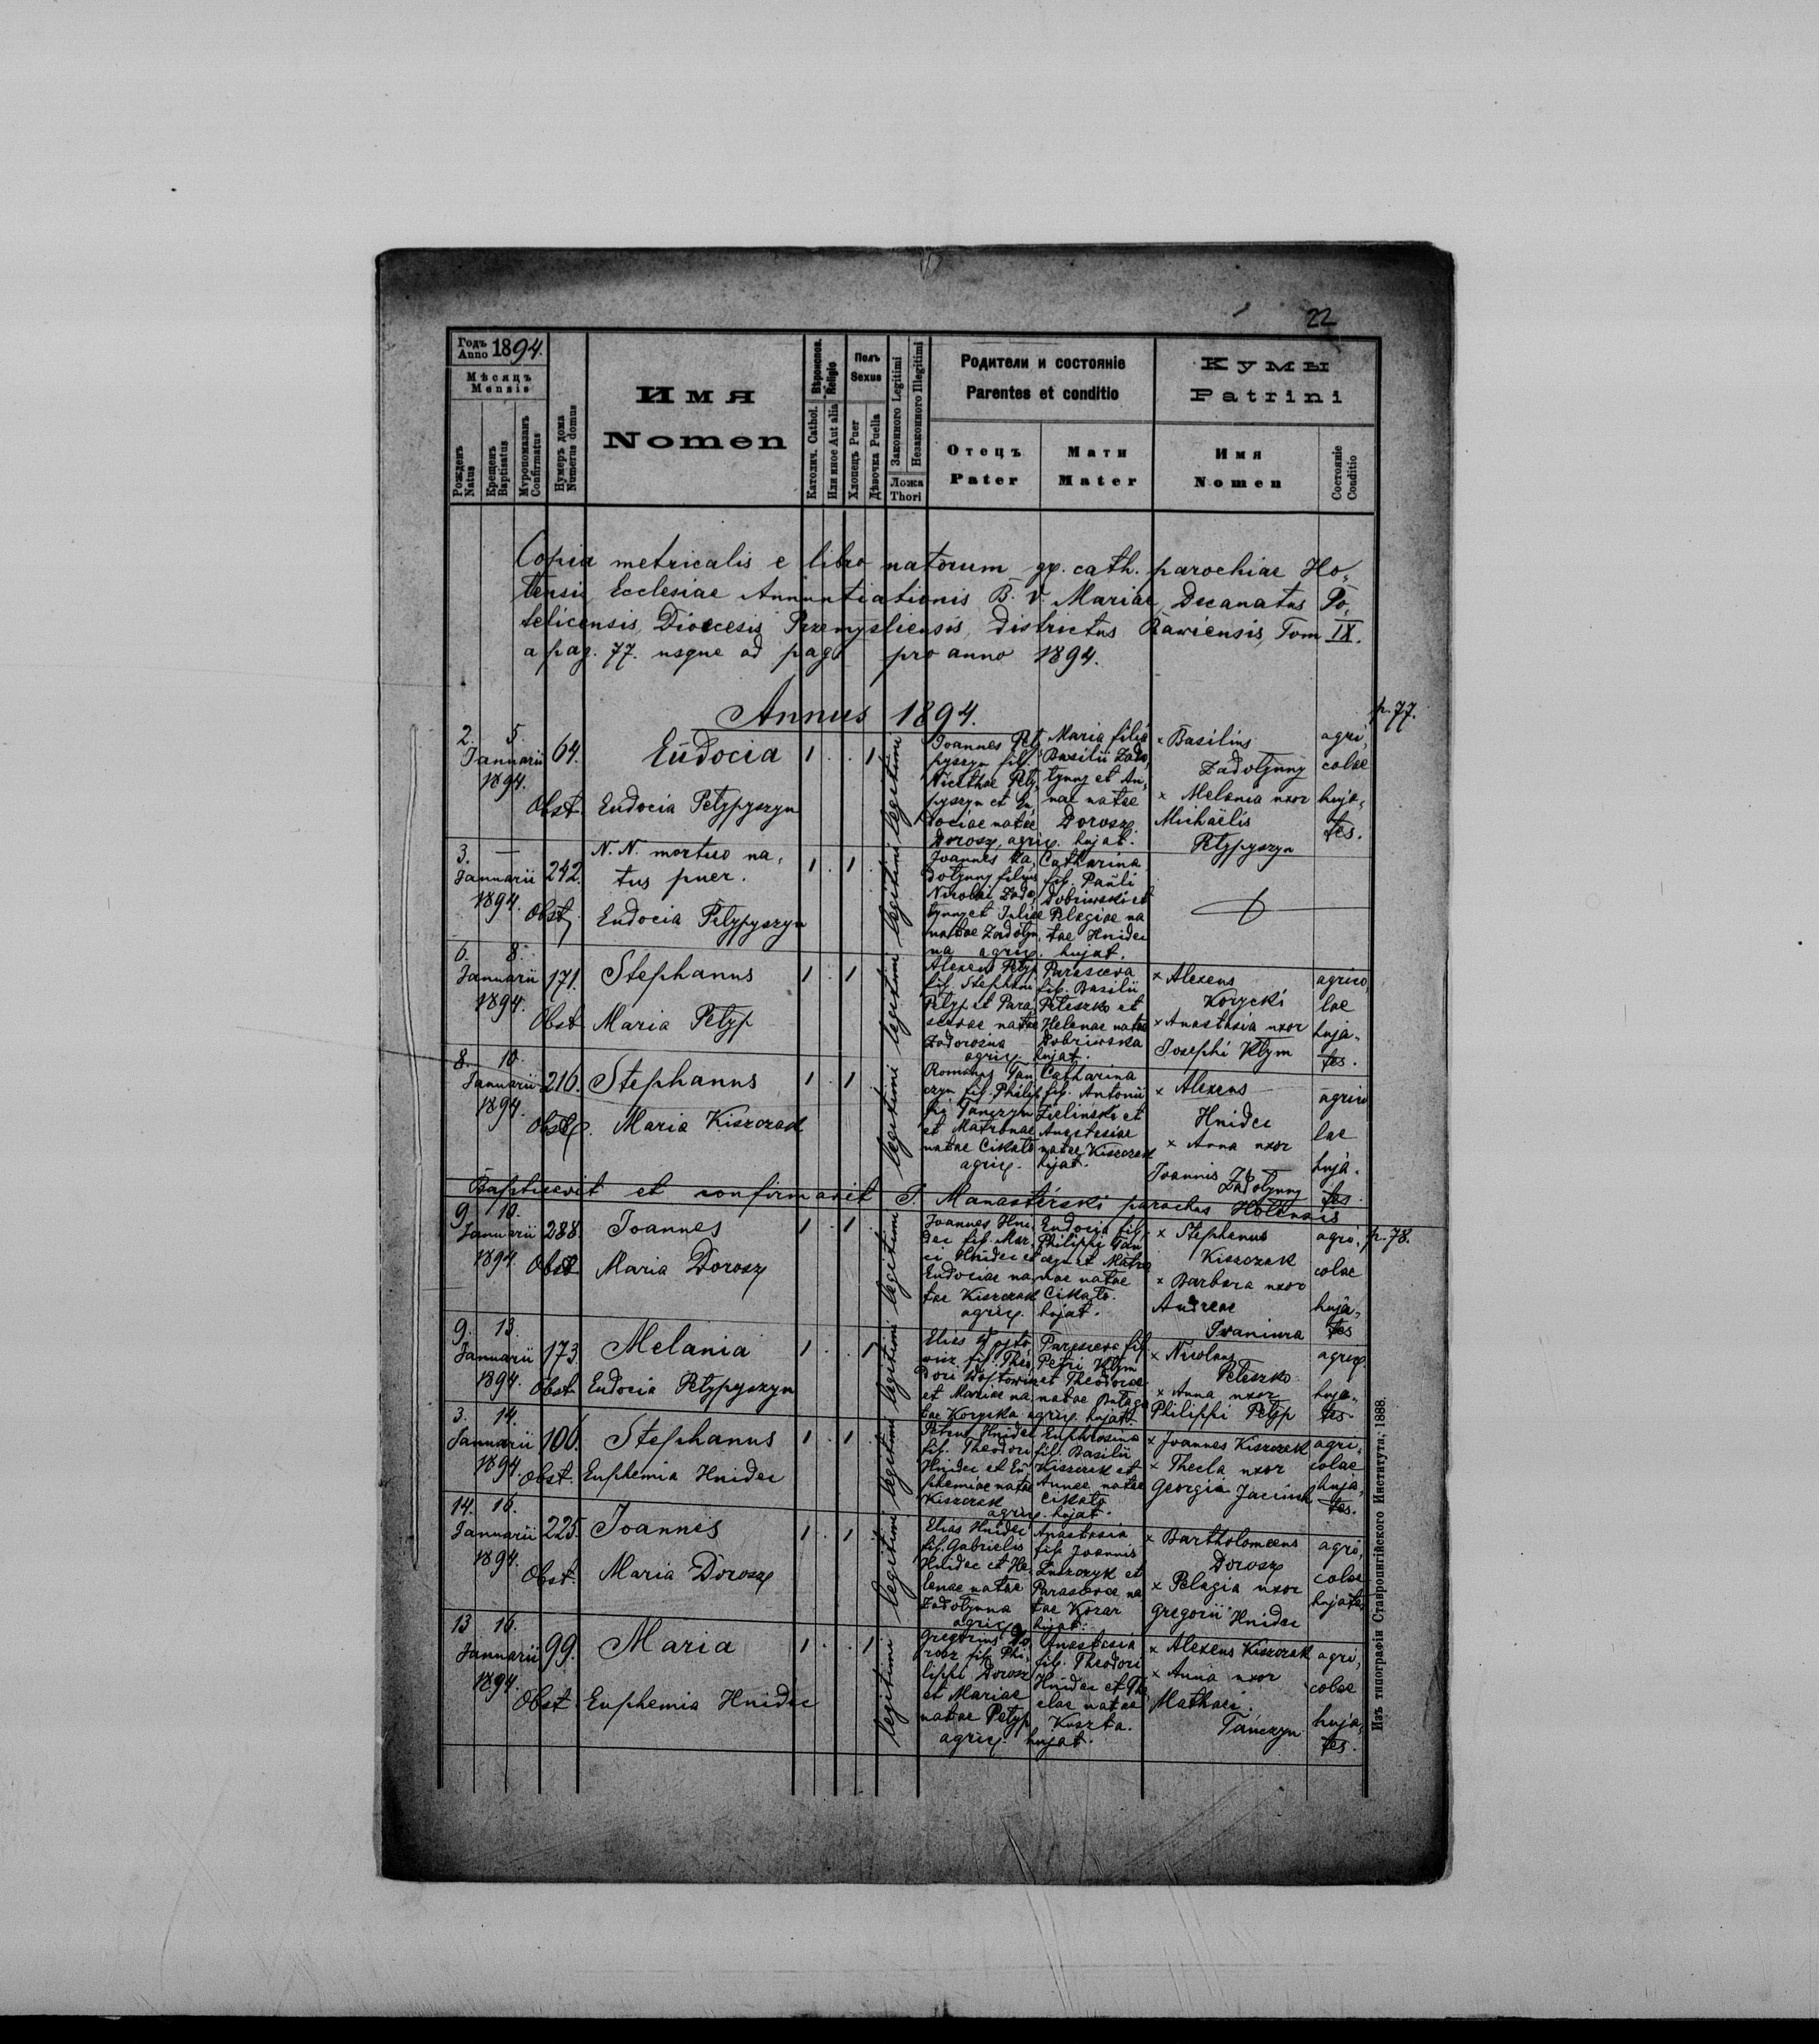 22
Годъ
Anno 1894.
Мѣсяцъ
Mensis
Рожденъ
Natus
Крещенъ
Baptisatus
Мѵропомазанъ
Confirmatus
Нумеръ дома
Numerus domus
Имя
Nomen
Вѣроиспов.
Religio
Католич. Cathol.
Или иное Aut alia
Полъ
Sexus
Хлопецъ Puer
Дѣвочка Puella
Законного Legitimi
Незаконного Illegitimi
Ложа
Thori
Родители и состояніе
Parentes et conditio
Отецъ
Pater
Мати
Mater
Кумы
Patrini
Имя
Nomen
Состояніе
Conditio
Copia metricalis e libro natorum gr. cath. parochiae Ho,
tensis Ecclesiae Annuntiationis B. V. Mariae, Decanatus Po,
telicensis, Dioecesis Przemysliensis, districtus Rawiensis, Tom IX.
a pag. 77. usque ad pag. pro anno 1894.
Annus 1894.
p. 77.
2. 5.
Januarii
1894.
64.
Eudocia
1 . . 1
legitimi
Obst. Eudocia Petypyszyn
Joannes Pety,
pyszyn fil.
Nicetae Pety,
pyszyn et Eu,
dociae natae
Dorosz, agric. hujat.
Maria filia
Basilii Zado,
tynny et An,
nae natae
Dorosz.
× Basilius
Zadotynny
× Melania uxor
Michaëlis
Petypyszyn
agri,
colae
huja,
tes.
3. —
Januarii
1894.
242.
N. N. mortuo na,
tus puer.
1 . 1
legitimi
Obst. Eudocia Petypyszyn
Joannes Za,
dotynny filius
Nicolai Zado,
tynny et Juliae
natae Zadotyn,
na agric. hujat.
Catharina
fil. Pauli
Dobriwski et
Pelagiae na
tae Hnidec
6. 8.
Januarii
1894.
171.
Stephanus
1 . 1
legitimi
Obst. Maria Petyp
Alexius Petyp
fil. Stephani
Petyp et Para,
scevae natae
Zadorozna
agric. hujat.
Parasceva
fil. Basilii
Peleszko et
Helenae natae
Dobriwska
× Alexius
Korycki
× Anastasia uxor
Josephi Klym
agrico,
lae
huja,
tes.
8. 10.
Januarii
1894.
216.
Stephanus
1 . 1
legitimi
Obst. Maria Kiszczak
Romanus Tan
czyn fil. Philip
pi Tanczyn
et Matronae
natae Cikalo
agric. hujat.
Catharina
fil. Antonii
Zielinski et
Anastasiae
natae Kiszczak
× Alexius
Hnidec
× Anna uxor
Joannis Zadotynny
agrico
lae
huja,
tes.
Baptisavit et confirmavit J. Manasterski parochus Hotensis
9. 10.
Januarii
1894.
288.
Joannes
1 . 1
legitimi
Obst. Maria Dorosz
Joannes Hni,
dec fil. Mar,
ci Hnidec et
Eudociae na,
tae Kiszczak
agric. hujat.
Eudocia fil.
Philippi Tan
czyn et Matro
nae natae
Cikalo.
× Stephanus
Kiszczak
× Barbara uxor
Andreae
Iwaniura
agri,
colae
huja,
tes
p. 78.
9. 13.
Januarii
1894.
173.
Melania
1 . . 1
legitimi
Obst. Eudocia Petypyszyn
Elias Wojto,
wicz fil. Theo,
dori Wojtowicz
et Mariae na,
tae Korycka agric. hujat.
Parasceva fil.
Petri Klym
et Theodorae
natae
× Nicolaus
Peleszko
× Anna uxor
Philippi Petyp
agric.
huja,
tes.
3. 14.
Januarii
1894.
106.
Stephanus
1 . 1
legitimi
Obst. Euphemia Hnidec
Petrus Hnidec
fil. Theodori
Hnidec et Eu
phemiae natae
Kiszczak
agric. hujat.
Euphrosina
fil. Basilii
Kiszczak et
Annae natae
Cikalo
× Joannes Kiszczak
× Thecla uxor
Georgii
agri,
colae
huja,
tes.
14. 16.
Januarii
1894.
225.
Joannes
1 . 1
legitimi
Obst. Maria Dorosz
Elias Hnidec
fil. Gabrielis
Hnidec et He,
lenae natae
Zadotynna
agric. hujat.
Anastasia
fil. Joannis
et
Parascevae na
tae Kozar
× Bartholomeus
Dorosz
× Pelagia uxor
Gregorii Hnidec
agri,
colae
hujates
13 16.
Januarii
1894.
99.
Maria
1 . . 1
legitimi
Obst. Euphemia Hnidec
Gregorius Do
rosz fil. Phi,
lippi Dorosz
et Mariae
natae Petyp
agric. hujat.
Anastasia
fil. Theodori
Hnidec et The
clae natae
Kuszta.
× Alexius Kiszczak
× Anna uxor
Mathaei
Tańczyn
agri,
colae
huja,
tes.
Изъ типографіи Ставропигійского Института, 1888.